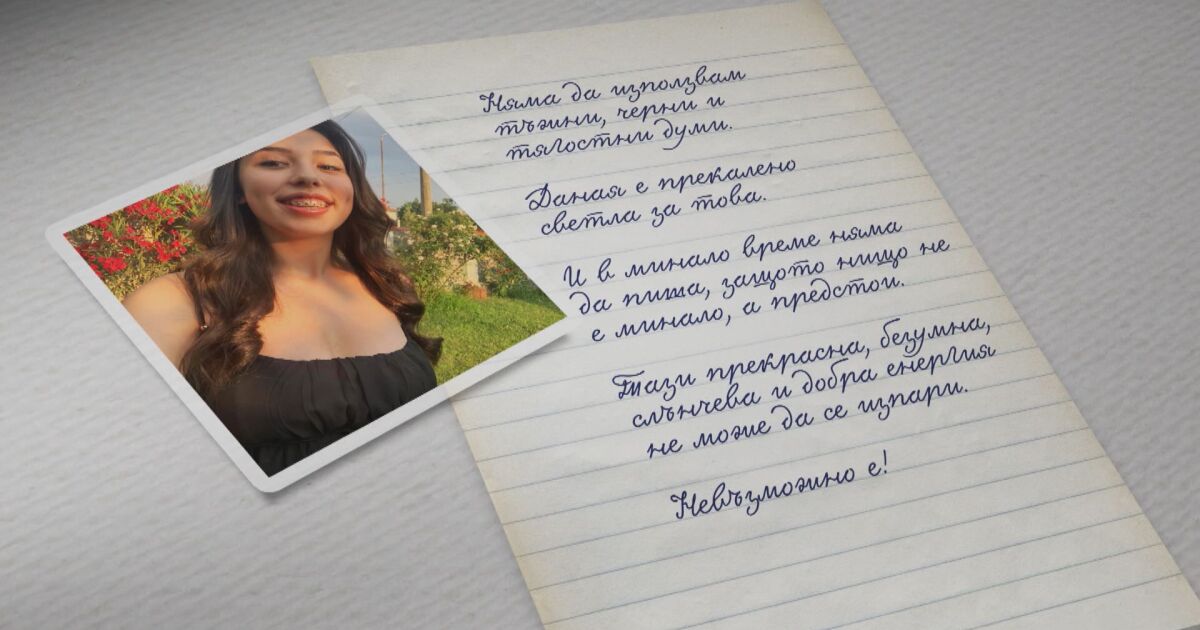 Няма да използвам
тъжни, черни и
тягостни думи.
Даная е прекалено
светла за това.
И в минало време няма
да пиша, защото нищо не
е минало, а предстои.
Тази прекрасна, безумна,
слънчева и добра енергия
не може да се изпари.
Невъзможно е!